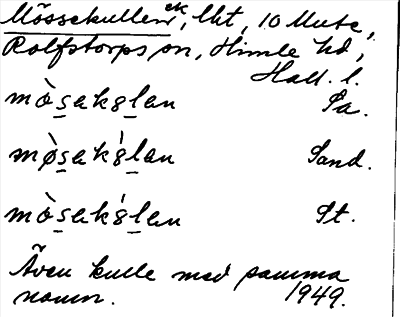 Mössekullen ek, lht, 10 Mute,
Rolfstorps sn, Himle hd,
Hall. l.
mò̀s̠ek8l̠en Pa.
mø̀s̠ek8̀l̠en Sand.
mò̀s̠ek8́l̠en St.
Även kulle med samma
namn. 1949.